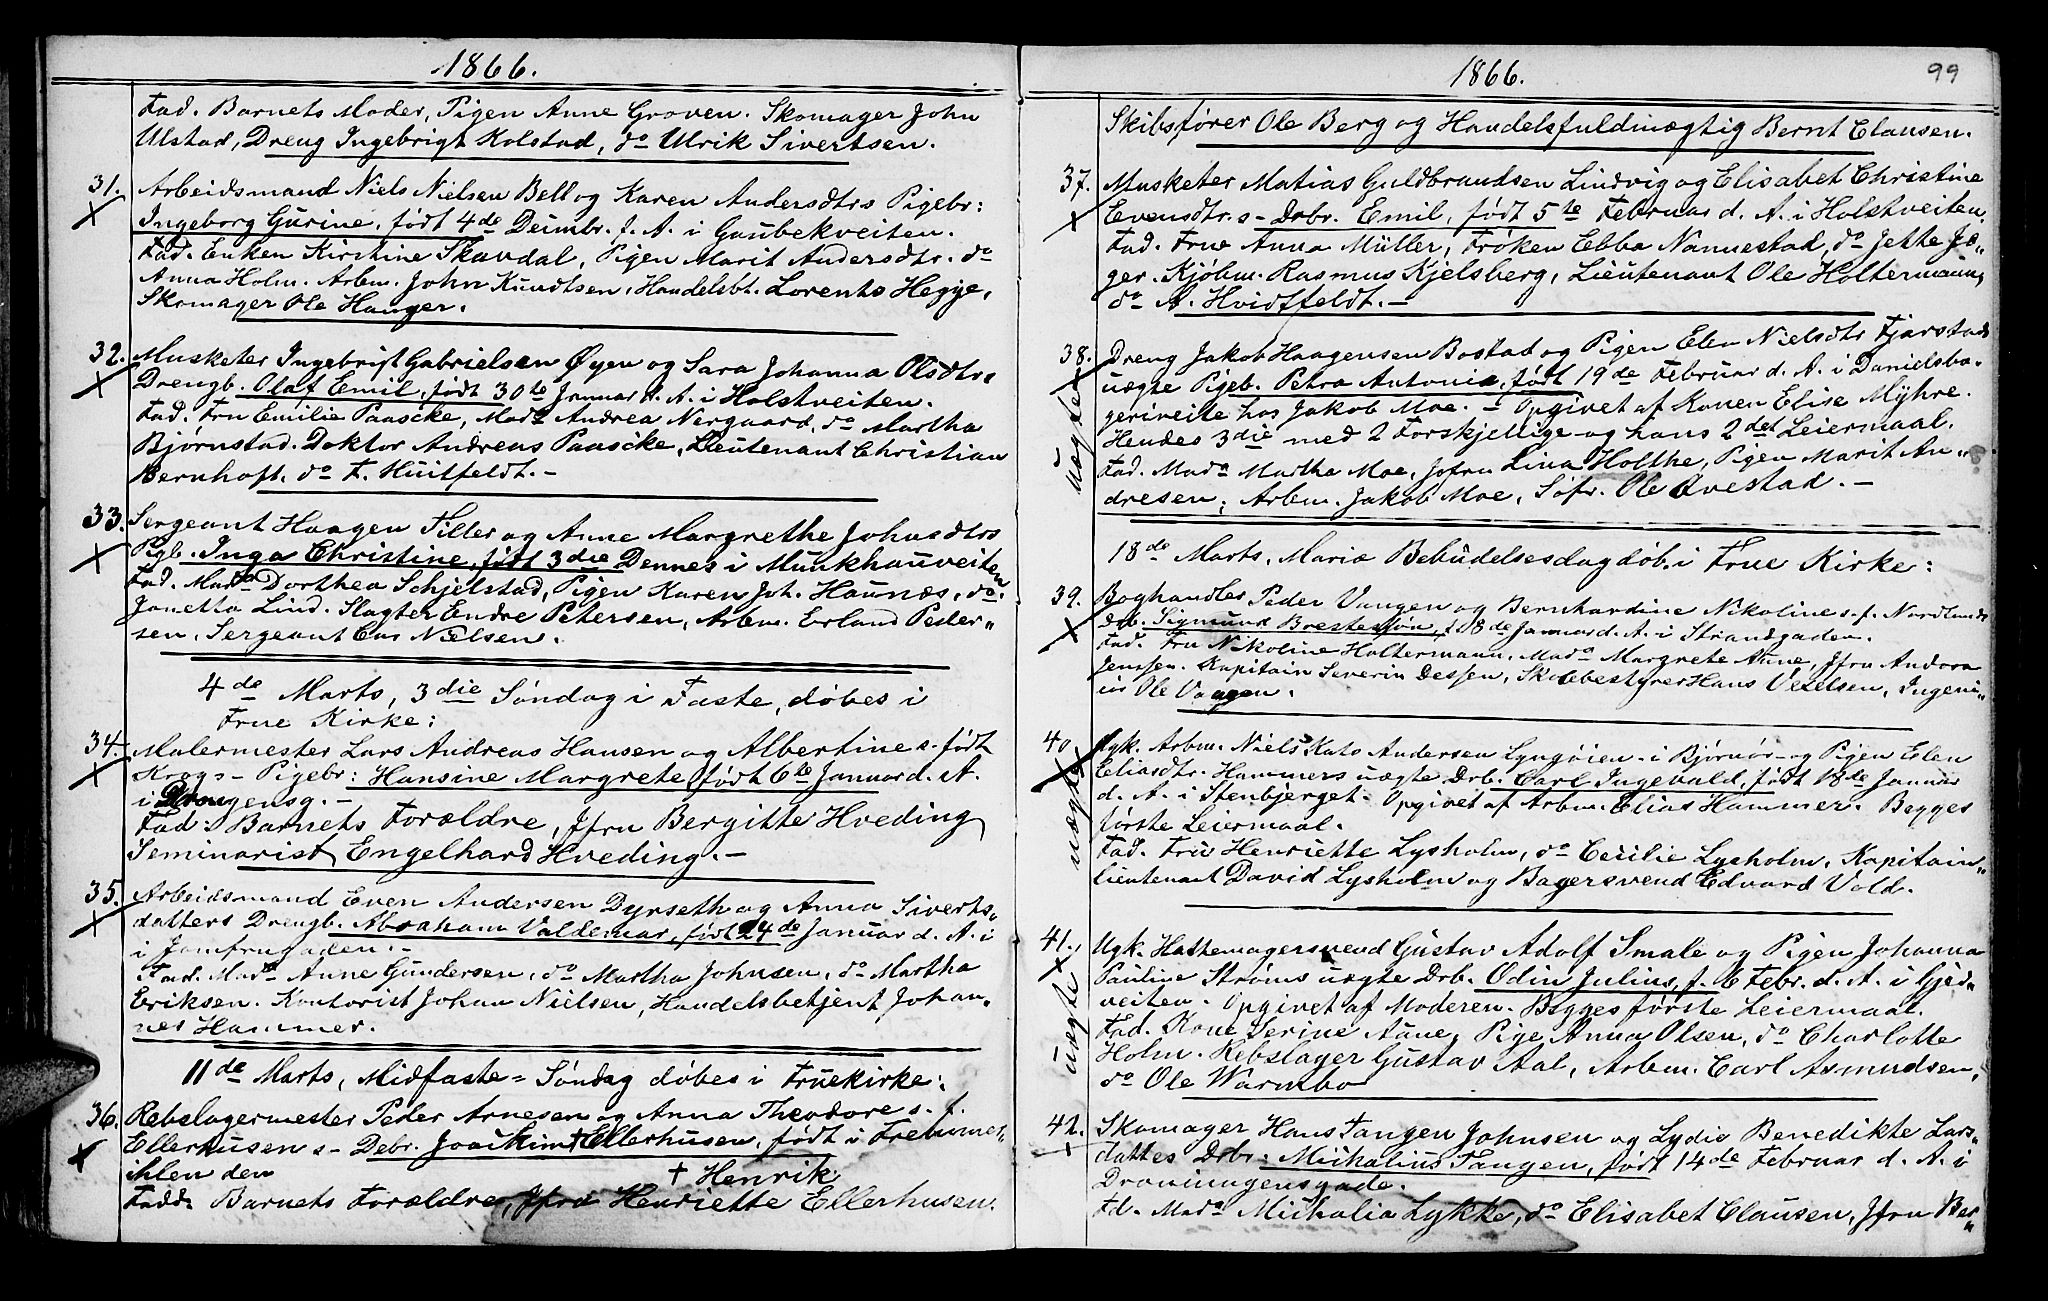 1866.
Fad. Barnets Moder, Pigen Anne Groven. Skomager John
Ulstad, Dreng Ingebrigt Kolstad, do Ulrik Sivertsen.
31. Arbeidsmand Niels Nielsen Bell og Karen Andersdtrs Pigebr:
Ingeborg Gurine, født 4de Dcimbr. f. A. i Gaubekveiten.
Fad. Enken Kirstine Skavdal, Pigen Marit Andersdtr. do
Anna Holm. Arbm. John Knudtsen, Handelsbt. Lorents Hegge,
Skomager Ole Hauger.
32. Musketer Ingebrigt Gabrielsen Øyen og Sara Johanna Olsdtrs
Drengb. Olaf Emil, født 30te Januar d. A. i Holstveiten.
Fad. Fru Emilie Paascke, Mada Andrea Nergaard, do Martha
Bjørnstad. Doktor Andreas Paascke, Lieutenant Christian
Bernhoft, do F. Huitfeldt.-
33. Sergeant Haagen Tiller og Anne Margrethe Johnsdtrs
Pigb. Inga Christine, født 3die Dennes i Munkhauveiten
Fad. Mada Dorthea Schjelstad, Pigen Karen Joh. Haunæs, do
Janetta Lind. Slagter Endre Petersen, Arbm. Erland Peder"
sen, Sergeant Nielsen.
4de Marts, 3die Søndag i Faste, døbes i
Frue Kirke:
34. Malermester Lars Andreas Hansen og Albertine s. født
Krogs - Pigebr: Hansine Margrete, født 6te Januar d. A.
i Drongensg.-
Fad: Barnets Forældre, Jfru Bergitte Hveding
Seminarist Engelhard Hveding.-
35. Arbeidsmand Even Andersen Dyrseth og Anna Siverts"
datters Drengb. Abraham Valdemar, født 24de Januar d. A. i
i Jomfrugaden.-
Fad. Mada Anne Gundersen, do Martha Johnsen, do Martha
Eriksen. Kontorist Johan Nielsen, Handelsbetjent Johan"
nes Hammer.
11de Marts, Midfaste= Søndag døbes i Fruekirke:
36. Rebslagermester Peder Arnesen og Anna Theodore s. f.
Ellerhusen s- Debr. Joackim + Ellerhusen, født i
ihlen den
+ Henrik
Fadd: Barnets Forældre, Jfru Henriette Ellerhusen.
1866.
99
Skibsfører Ole Berg og Handelsfuldmægtig Bernt Clausen.
37. Musketer Matias Guldbrandsen Lindvig og Elisabet Christine
Evensdtr. s- Drbr. Emil, født 5te Februar d. A. i Holstveiten,
Fad. Frue Anna Müller, Frøken Ebba Nannestad, do Jette Jæ"
ger. Kjøbm. Rasmus Kjelsberg, Lieutenant Ole Holtermann,
do A. Hvidtfeldt.-
38. Dreng Jakob Haagensen Bostad og Pigen Elen Nielsdtr Fjarstads
uægte Pigeb. Petra Antonia, født 19de Februar d. A. i Danielsba-
geriveite hos Jakob Moe. - Opgivet af Konen Elise Myhre.
Hendes 3die med 2 Forskjellige og hans 2det Leiermaal.
Uægte
Fad. Mada Marthe Moe, Jofru Lina Holthe, Pigen Marit An"
dresen, Arbm. Jakob Moe, Søfr. Ole Qvestad.-
18de Marts, Mariæ Bebudelsesdag døb. i Frue Kirke:
39. Boghandles Peder Vangen og Bernhardine Nikoline s. f. Nordlunds
Drb. Sigmund Brestesøn, f. 8de Januar d. A. i Strandgaden.
Fad. Fru Nikoline Holtermann, Mada Margrete Aune, Jfru Andora
Jenssen. Kapitain Severin Dessen, Skolebestyrer Hans Vexelsen, Ingeni"
iør Ole Vangen.
40 Ugk. Arbm. Niels Kato Andersen Lyngøien - i Bjørnør - og Pigen Elen
Eliasdtr. Hammers uægte Drb. Carl Ingevald, født 18de Januar
d. A. i Stenbjerget. Opgivet af Arbm. Elias Hammer. Begges
første Leiermaal.
uægte
Fad. Fru Henriette Lysholm, do Cecilie Lysholm, Kapitain"
lieutenant David Lysholm og Bagersvend Edvard Vold.
41. Ugk. Hattemagersvend Gustav Adolf Smale og Pigen Johanna
Pauline Strøms uægte Drb. Odin Julius, f. 6 Febr. d. A. i Gjed"
veiten. Opgivet af Moderen. Begges første Leiermaal.
uægte
Fad. Kone Serine Aune, Pige Anna Olsen, do Charlotte
Holm. Rebslager Gustav Aal, Arbm. Carl Asmundsen,
do Ole Warmbo
42. Skomager Hans Tangen Johnsen og Lydie Benedikte Lars-
dattes Drbr. Mickalius Tangen, født 14de Februar d. A. i
Dronningensgade.
Fd. Mada Mickalia Lykke, do Elisabet Clausen, Jfru Ber"